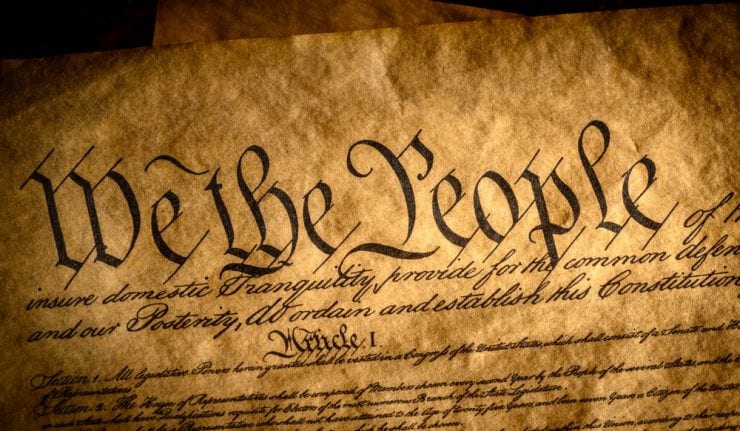 We the People of th
insure domestic Tranquility, provide for the common defen
and our Posterity, do ordain and establish this Constitution
Article. I.
Section. 1. All legislative Powers herein granted shall be vested in a Congress of the United States, which shall consist of a Senate and Ho
of Representatives.
Section. 2. The House of Representatives shall be composed of Members chosen every second Year by the People of the several States, and the
in each State shall have the Qualifications requisite for Electors of the most numerous Branch of the State Legislature.
Representative who shall not have attained to the Age of twenty five Years, and been seven Years a Citizen of the United
shall be chosen.